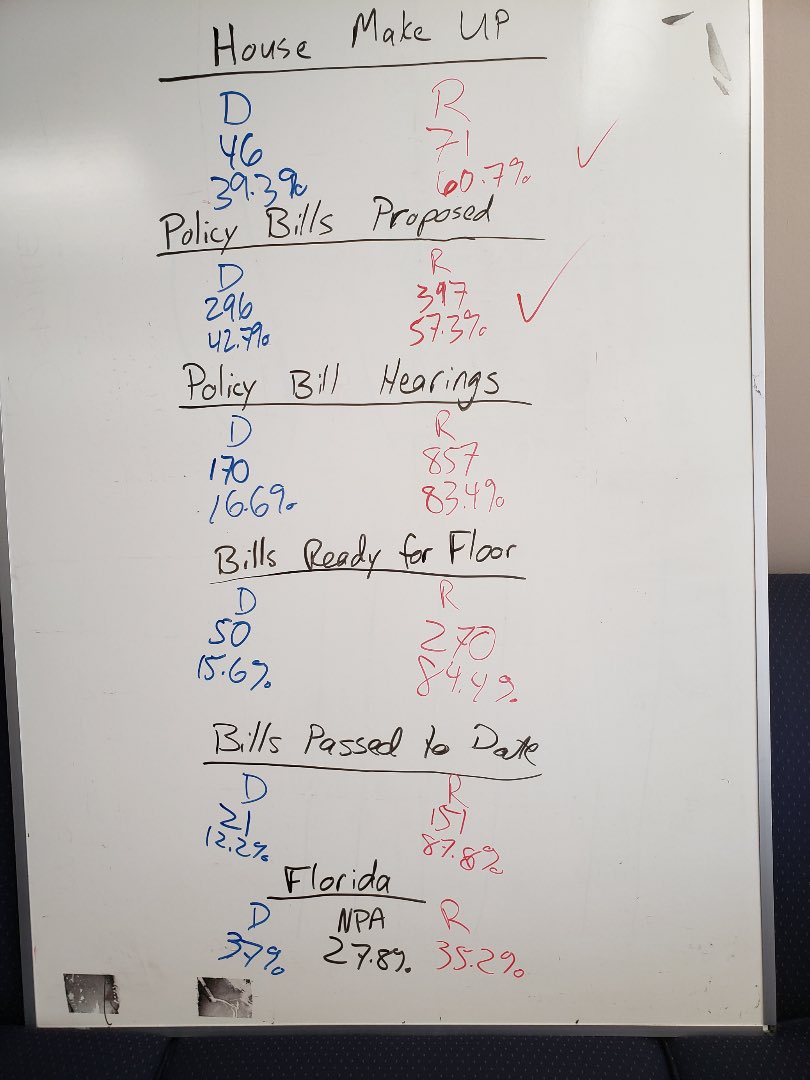 House Make UP
D R
46 71 ✓
39.3% 60.7%
Policy Bills Proposed
D R
296 397 ✓
42.7% 57.3%
Policy Bill Hearings
D R
170 857
16.6% 83.4%
Bills Ready for Floor
D R
50 270
15.6% 84.4%
Bills Passed to Date
D R
21 151
12.2% 87.8%
Florida
D NPA R
37% 27.8% 35.2%